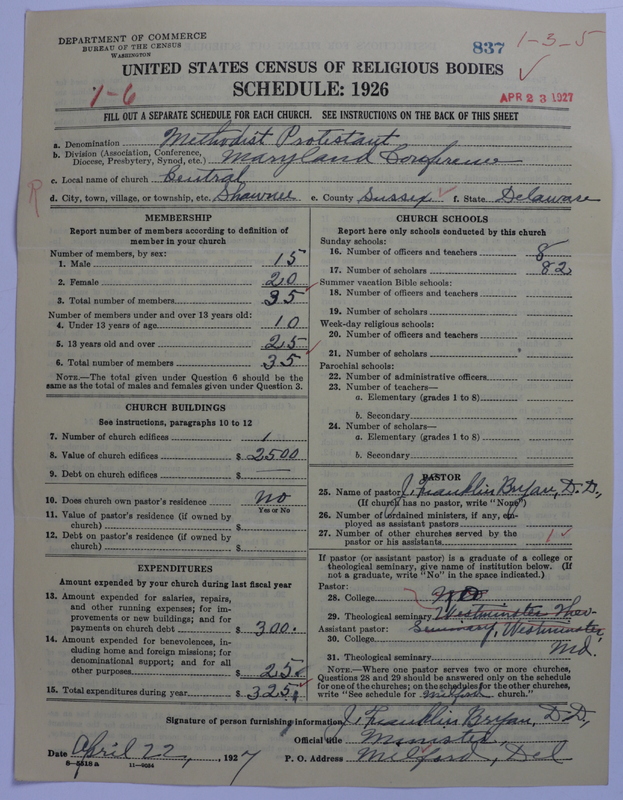 DEPARTMENT OF COMMERCE
BUREAU OF THE CENSUS
WASHINGTON
837
1-3-5
UNITED STATES CENSUS OF RELIGIOUS BODIES
SCHEDULE: 1926
1-6
APR 23 1927
FILL OUT A SEPARATE SCHEDULE FOR EACH CHURCH. SEE INSTRUCTIONS ON THE BACK OF THIS SHEET
a. Denomination Methodist Protestant
b. Division (Association, Conference, Diocese, Presbytery, Synod, etc.) Maryland Conference
c. Local name of church Central
R
d. City, town, village, or township, etc. Shawnee e. County Sussex f. State Delaware
MEMBERSHIP
Report number of members according to definition of
member in your church
Number of members, by sex:
1. Male 15
2. Female 20
3. Total number of members 35
Number of members under and over 13 years old:
4. Under 13 years of age 10
5. 13 years old and over 25
6. Total number of members 35
NOTE.—The total given under Question 6 should be the
same as the total of males and females given under Question 3.
CHURCH BUILDINGS
See instructions, paragraphs 10 to 12
7. Number of church edifices 1
8. Value of church edifices $ 2500
9. Debt on church edifices $ —
10. Does church own pastor's residence No
Yes or No
11. Value of pastor's residence (if owned by
church) $
12. Debt on pastor's residence (if owned by
church) $
EXPENDITURES
Amount expended by your church during last fiscal year
13. Amount expended for salaries, repairs,
and other running expenses; for im-
provements or new buildings; and for
payments on church debt $ 300.
14. Amount expended for benevolences, in-
cluding home and foreign missions; for
denominational support; and for all
other purposes $ 25
15. Total expenditures during year $ 325
CHURCH SCHOOLS
Report here only schools conducted by this church
Sunday schools:
16. Number of officers and teachers 8
17. Number of scholars 82
Summer vacation Bible schools:
18. Number of officers and teachers
19. Number of scholars
Week-day religious schools:
20. Number of officers and teachers
21. Number of scholars
Parochial schools:
22. Number of administrative officers
23. Number of teachers—
a. Elementary (grades 1 to 8)
b. Secondary
24. Number of scholars—
a. Elementary (grades 1 to 8)
b. Secondary
PASTOR
25. Name of pastor J. Franklin Bryan, D.D.,
(If church has no pastor, write "None")
26. Number of ordained ministers, if any, em-
ployed as assistant pastors
27. Number of other churches served by the
pastor or his assistants 1
If pastor (or assistant pastor) is a graduate of a college or
theological seminary, give name of institution below. (If
not a graduate, write "No" in the space indicated.)
Pastor:
28. College No
29. Theological seminary Westminster Theo-
Assistant pastor: Seminary, Westminster,
30. College Md.
31. Theological seminary
NOTE.—Where one pastor serves two or more churches,
Questions 28 and 29 should be answered only on the schedule
for one of the churches; on the schedules for the other churches,
write "See schedule for Milford church."
Signature of person furnishing information J. Franklin Bryan, D.D.,
Official title Minister,
Date April 22, 1927 P. O. Address Milford, Del
8-5518 a 11-9024